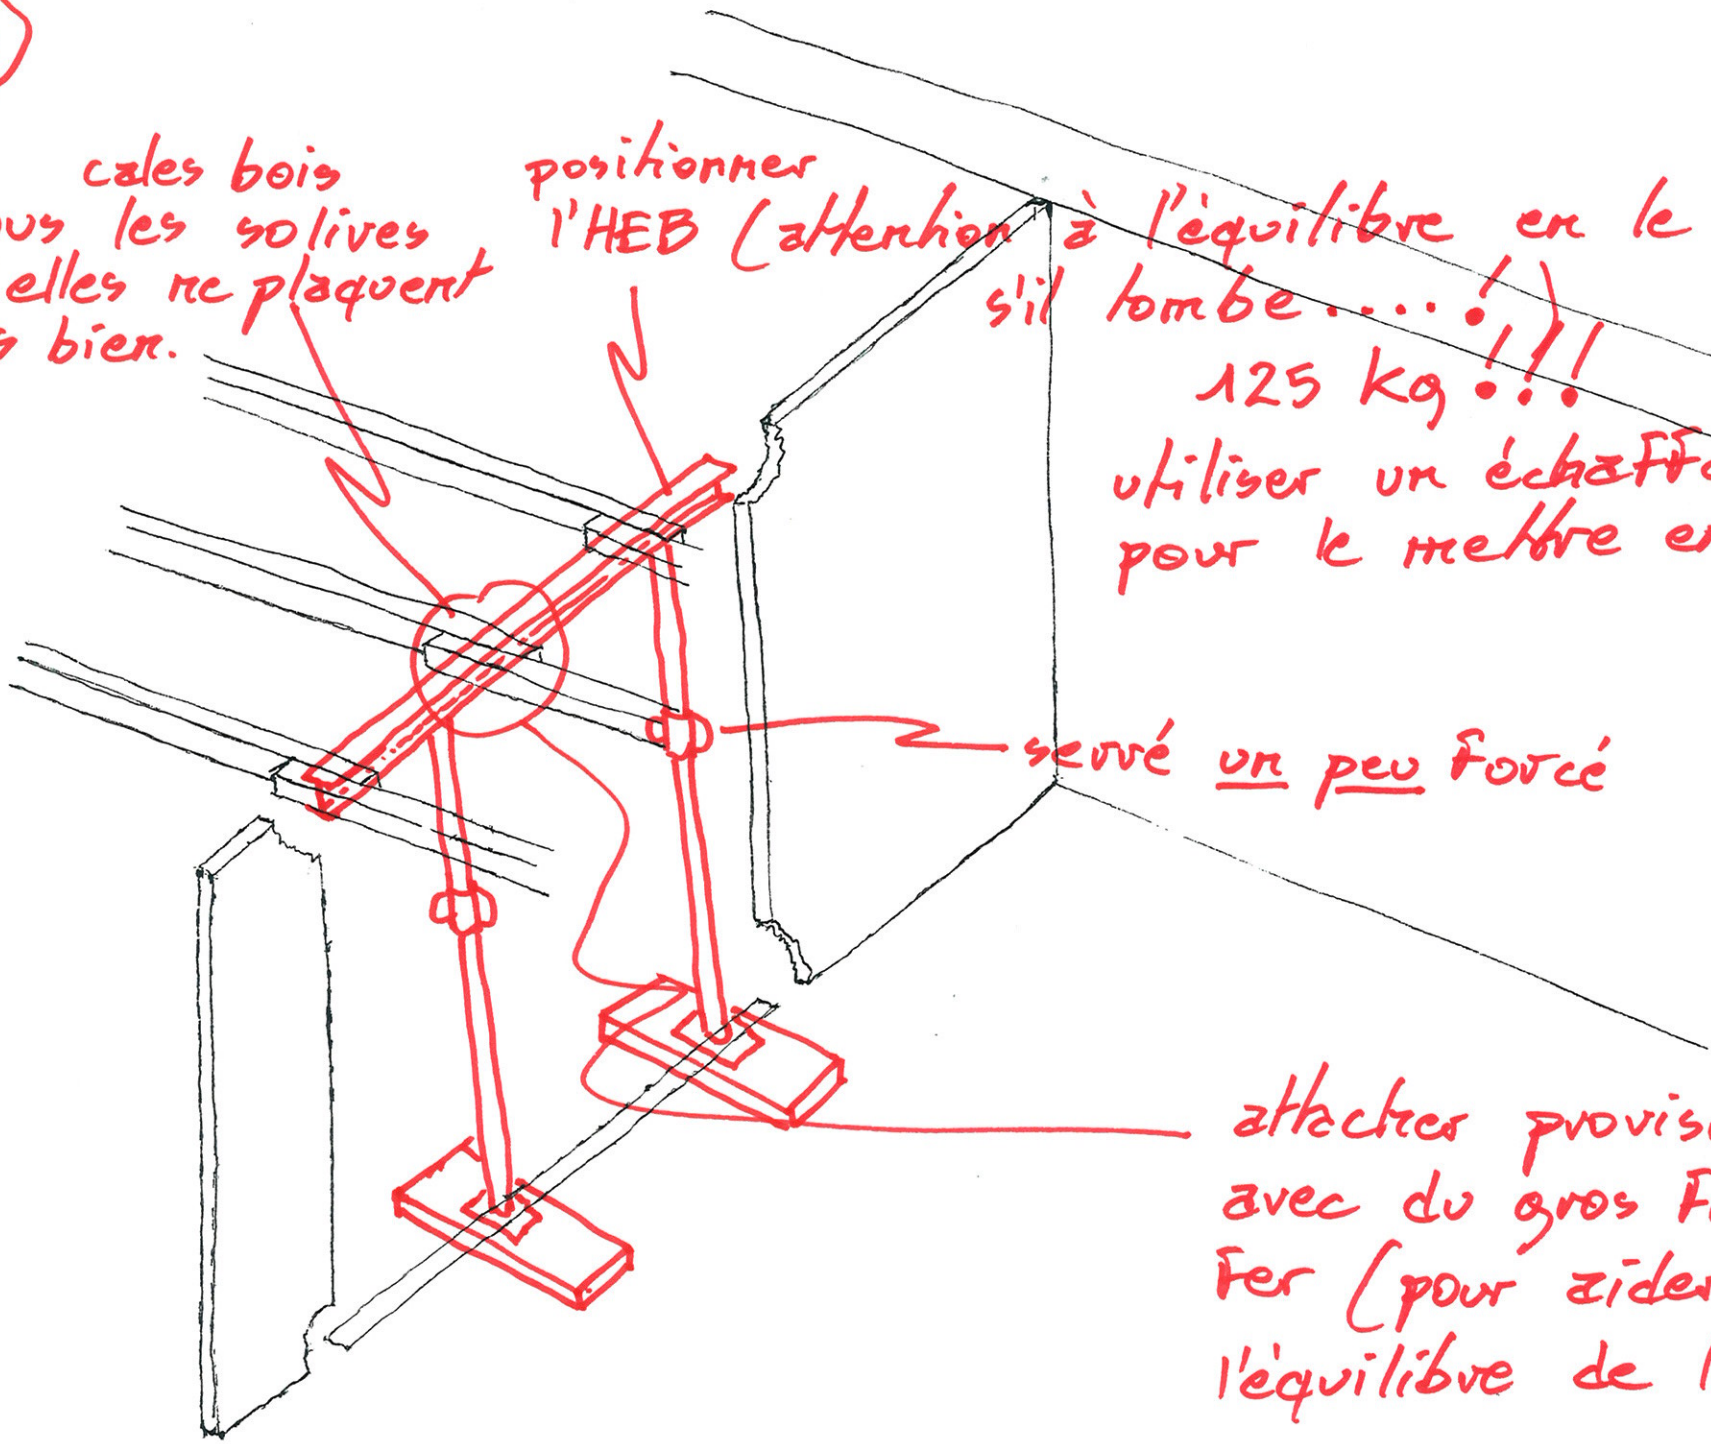 cales bois
les solives
elles ne plaquent
bien.
positionner
l'HEB (attention à l'équilibre en le
s'il tombe....!
125 kg !!!
utiliser un échaff
pour le mettre en
serré un peu forcé
attacher provis
avec du gros F
Fer (pour aider
l'équilibre de l